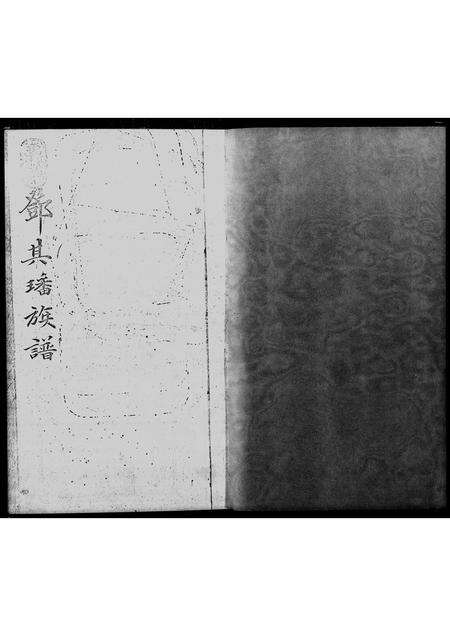 鄧其璠族譜